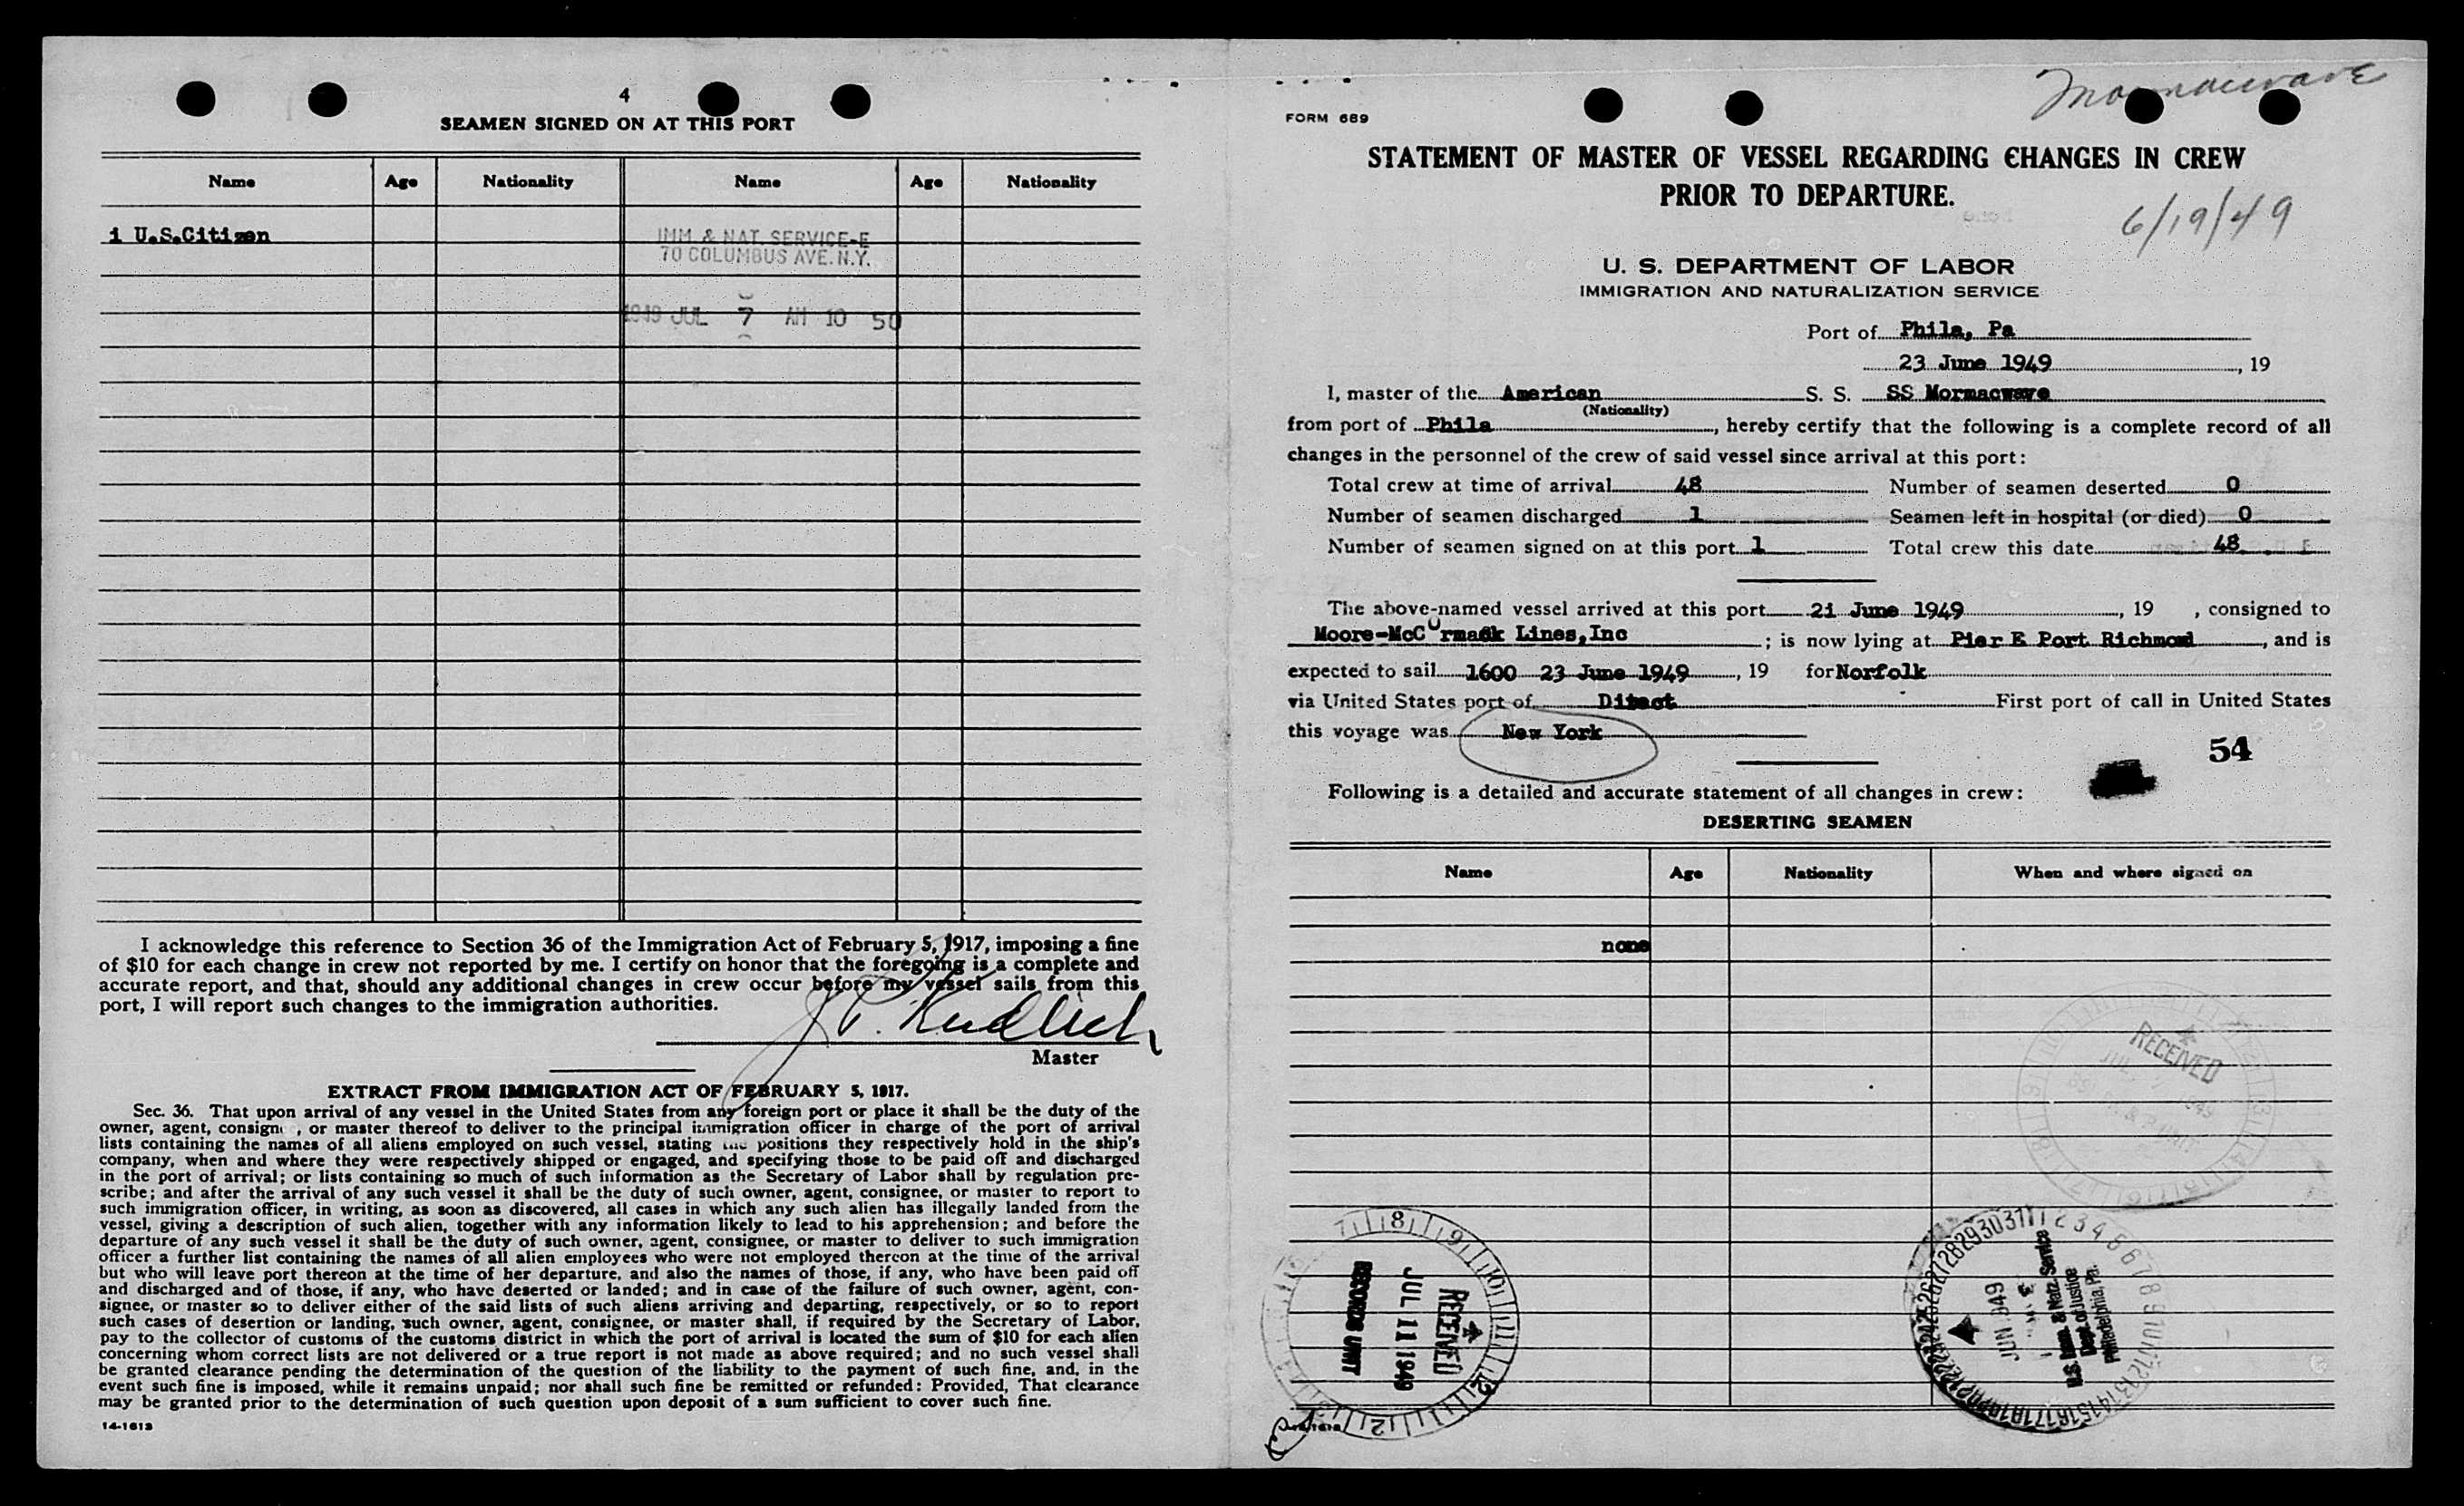 4
SEAMEN SIGNED ON AT THIS PORT
Name Age Nationality Name Age Nationality
1 U.S.Citizen
IMM & NAT. SERVICE-E
70 COLUMBUS AVE. N.Y.
1949 JUL 7 AM 10 50
I acknowledge this reference to Section 36 of the Immigration Act of February 5, 1917, imposing a fine
of $10 for each change in crew not reported by me. I certify on honor that the foregoing is a complete and
accurate report, and that, should any additional changes in crew occur before my vessel sails from this
port, I will report such changes to the immigration authorities.
Master
EXTRACT FROM IMMIGRATION ACT OF FEBRUARY 5, 1917.
Sec. 36. That upon arrival of any vessel in the United States from any foreign port or place it shall be the duty of the
owner, agent, consign , or master thereof to deliver to the principal immigration officer in charge of the port of arrival
lists containing the names of all aliens employed on such vessel, stating the positions they respectively hold in the ship's
company, when and where they were respectively shipped or engaged, and specifying those to be paid off and discharged
in the port of arrival; or lists containing so much of such information as the Secretary of Labor shall by regulation pre-
scribe; and after the arrival of any such vessel it shall be the duty of such owner, agent, consignee, or master to report to
such immigration officer, in writing, as soon as discovered, all cases in which any such alien has illegally landed from the
vessel, giving a description of such alien, together with any information likely to lead to his apprehension; and before the
departure of any such vessel it shall be the duty of such owner, agent, consignee, or master to deliver to such immigration
officer a further list containing the names of all alien employees who were not employed thereon at the time of the arrival
but who will leave port thereon at the time of her departure, and also the names of those, if any, who have been paid off
and discharged and of those, if any, who have deserted or landed; and in case of the failure of such owner, agent, con-
signee, or master so to deliver either of the said lists of such aliens arriving and departing, respectively, or so to report
such cases of desertion or landing, such owner, agent, consignee, or master shall, if required by the Secretary of Labor,
pay to the collector of customs of the customs district in which the port of arrival is located the sum of $10 for each alien
concerning whom correct lists are not delivered or a true report is not made as above required; and no such vessel shall
be granted clearance pending the determination of the question of the liability to the payment of such fine, and, in the
event such fine is imposed, while it remains unpaid; nor shall such fine be remitted or refunded: Provided, That clearance
may be granted prior to the determination of such question upon deposit of a sum sufficient to cover such fine.
14-1613
Mormacwave
FORM 689
STATEMENT OF MASTER OF VESSEL REGARDING CHANGES IN CREW
PRIOR TO DEPARTURE.
6/19/49
U. S. DEPARTMENT OF LABOR
IMMIGRATION AND NATURALIZATION SERVICE
Port of Phila, Pa
23 June 1949, 19
I, master of the American S. S. SS Mormacwave
(Nationality)
from port of Phila, hereby certify that the following is a complete record of all
changes in the personnel of the crew of said vessel since arrival at this port:
Total crew at time of arrival 48 Number of seamen deserted 0
Number of seamen discharged 1 Seamen left in hospital (or died) 0
Number of seamen signed on at this port 1 Total crew this date 48
The above-named vessel arrived at this port 21 June 1949, 19 , consigned to
Moore-McCormack Lines,Inc ; is now lying at Pier E Port Richmond, and is
expected to sail 1600 23 June 1949, 19 for Norfolk
via United States port of Direct First port of call in United States
this voyage was New York
54
Following is a detailed and accurate statement of all changes in crew:
DESERTING SEAMEN
Name Age Nationality When and where signed on
none
RECEIVED
RECEIVED
JUL 11 1949
RECORDS UNIT
JUN 1949
U.S. Imm. & Natz. Service
Dept. of Justice
Philadelphia, Pa.